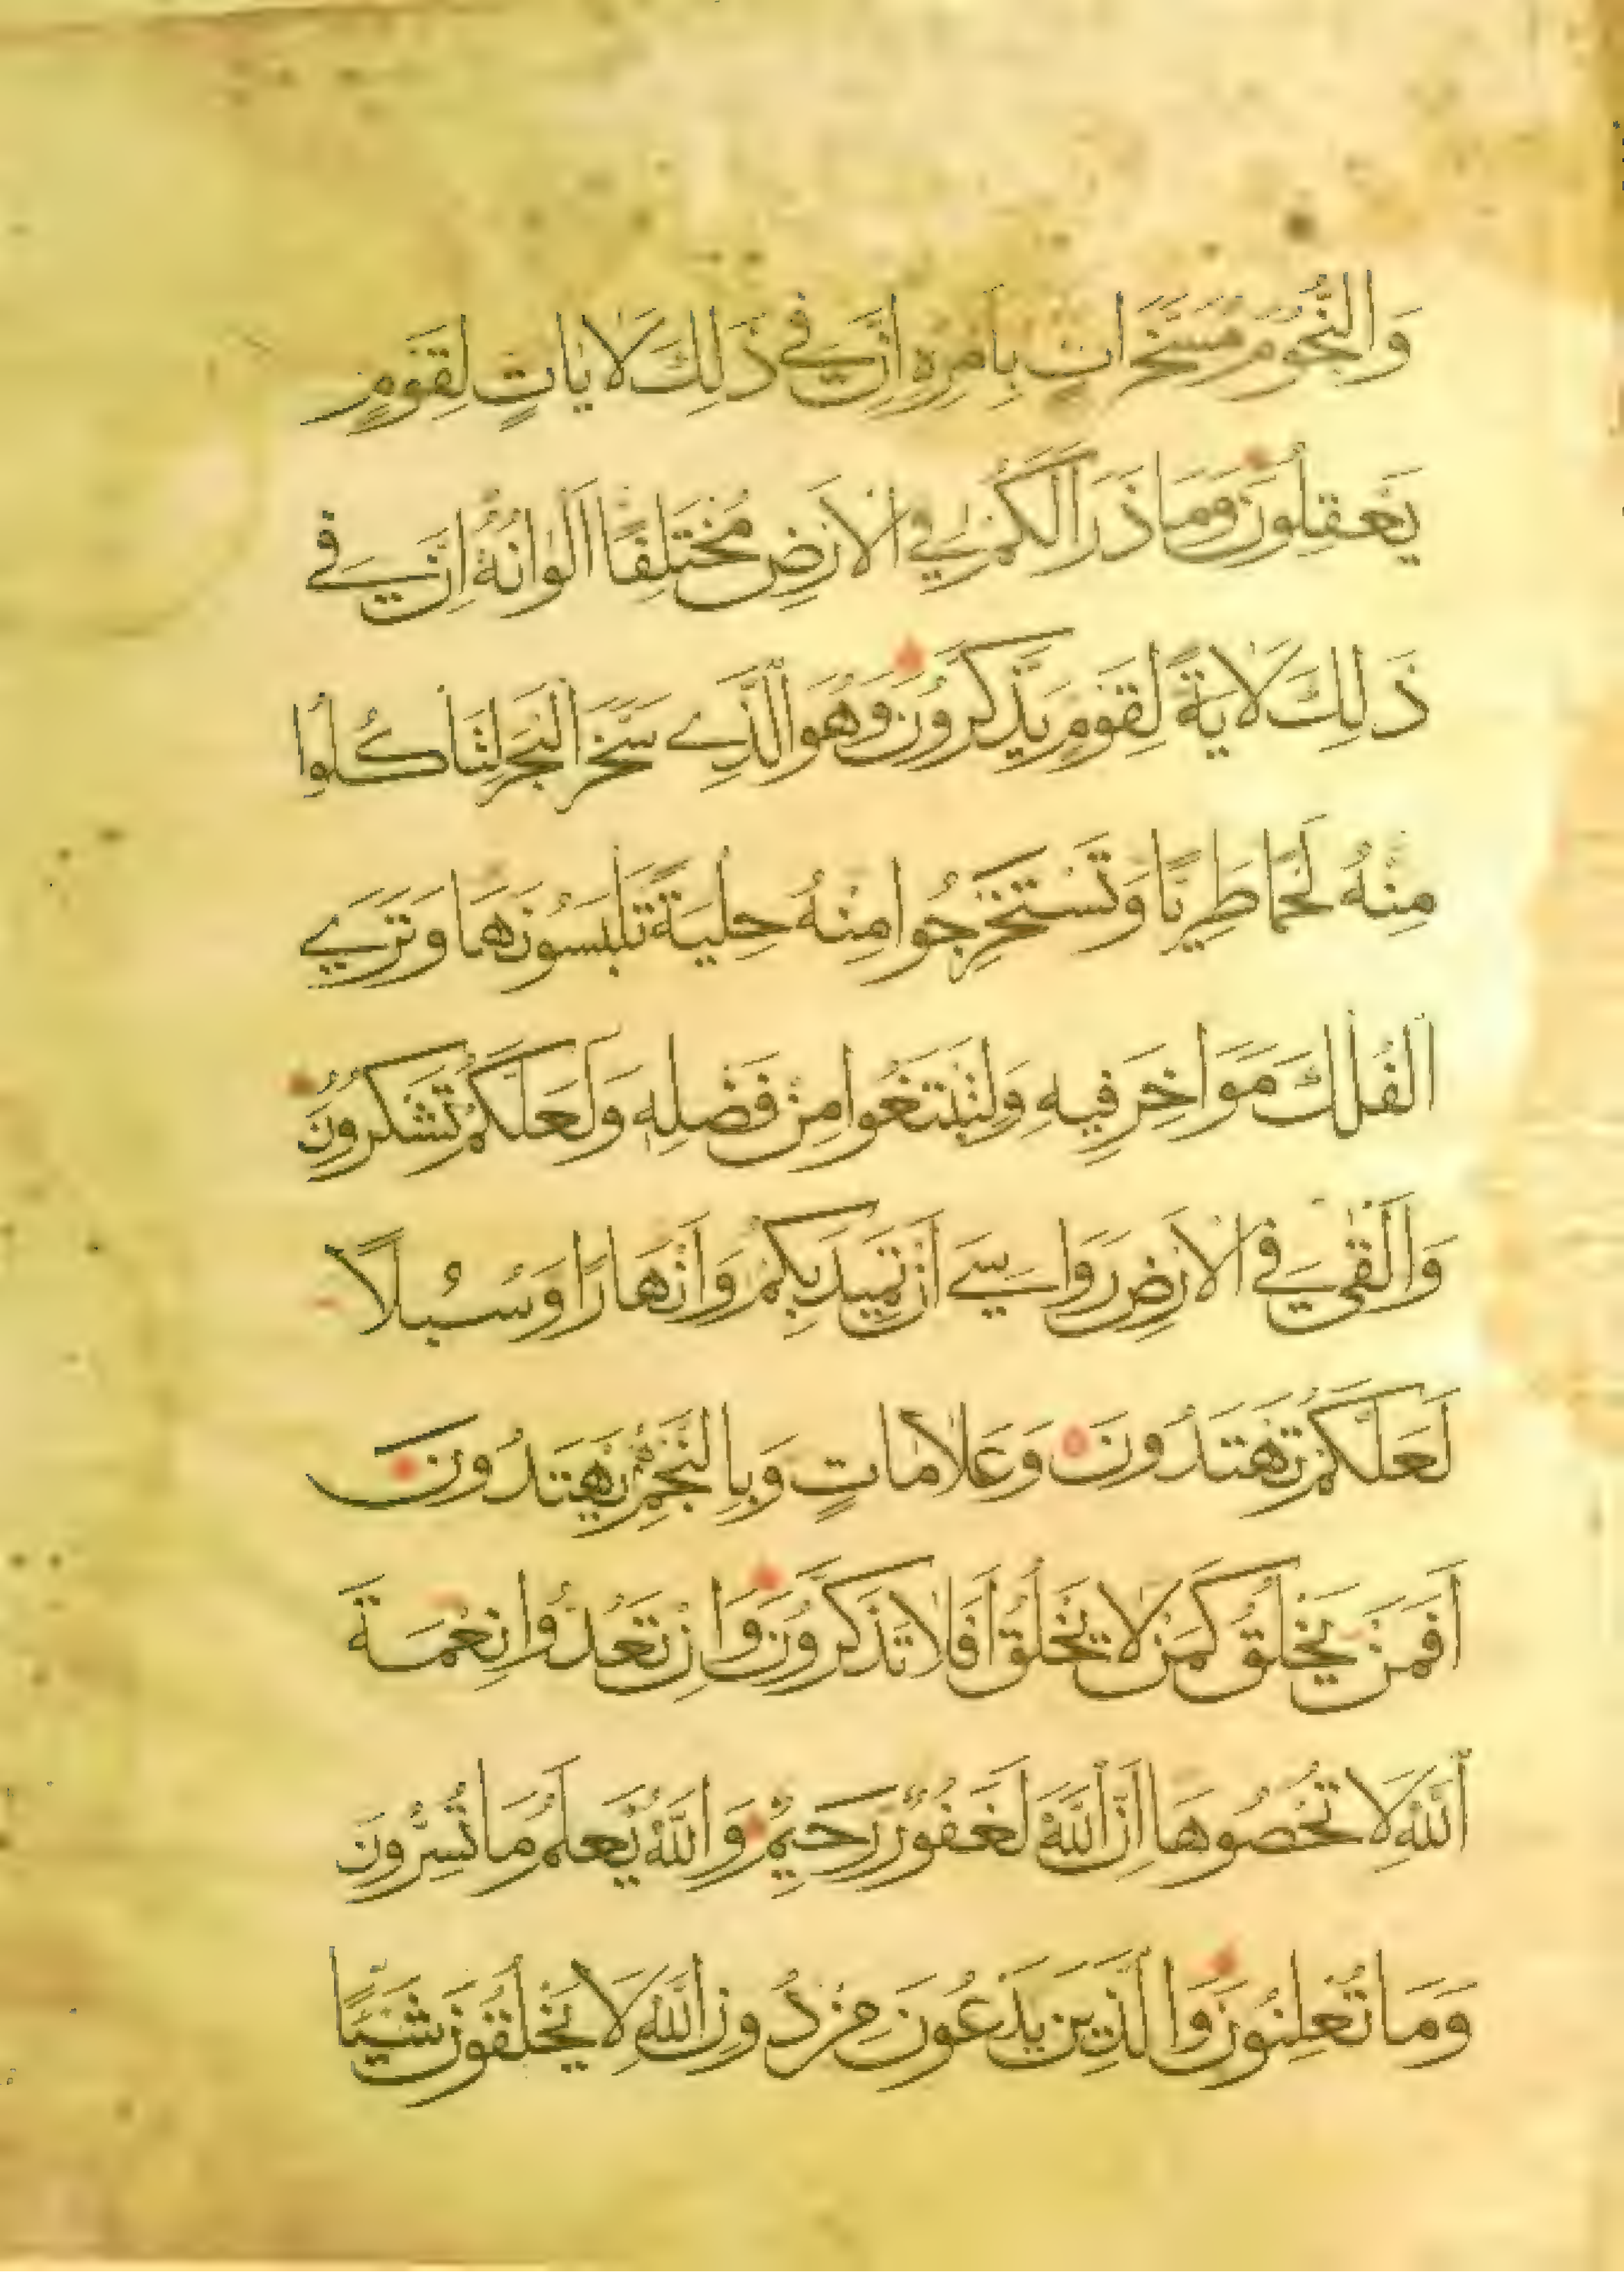 وَالنُّجُومَ مُسَخَّرَاتٍ بِاَمْرِهِ اِنَّ فِي ذَلِكَ لَايَاتٍ لِقَوْمٍ
يَعْقِلُونَ وَمَا ذَرَاَ لَكُمْ فِي الْاَرْضِ مُخْتَلِفًا اَلْوَانُهُ اِنَّ فِي
ذَلِكَ لَايَةً لِقَوْمٍ يَذَّكَّرُونَ وَهُوَ الَّذِي سَخَّرَ الْبَحْرَ لِتَاْكُلُوا
مِنْهُ لَحْمًا طَرِيًّا وَتَسْتَخْرِجُوا مِنْهُ حِلْيَةً تَلْبَسُونَهَا وَتَرَي
الْفُلْكَ مَوَاخِرَ فِيهِ وَلِتَبْتَغُوا مِنْ فَضْلِهِ وَلَعَلَّكُمْ تَشْكُرُونَ
وَاَلْقَي فِي الْاَرْضِ رَوَاسِيَ اَنْ تَمِيدَ بِكُمْ وَاَنْهَارًا وَسُبُلًا
لَعَلَّكُمْ تَهْتَدُونَ وَعَلَامَاتٍ وَبِالنَّجْمِ هُمْ يَهْتَدُونَ
اَفَمَنْ يَخْلُقُ كَمَنْ لَا يَخْلُقُ اَفَلَا تَذَكَّرُونَ وَاِنْ تَعُدُّوا نِعْمَةَ
اللَّهِ لَا تُحْصُوهَا اِنَّ اللَّهَ لَغَفُورٌ رَحِيمٌ وَاللَّهُ يَعْلَمُ مَا تُسِرُّونَ
وَمَا تُعْلِنُونَ وَالَّذِينَ يَدْعُونَ مِنْ دُونِ اللَّهِ لَا يَخْلُقُونَ شَيْئًا